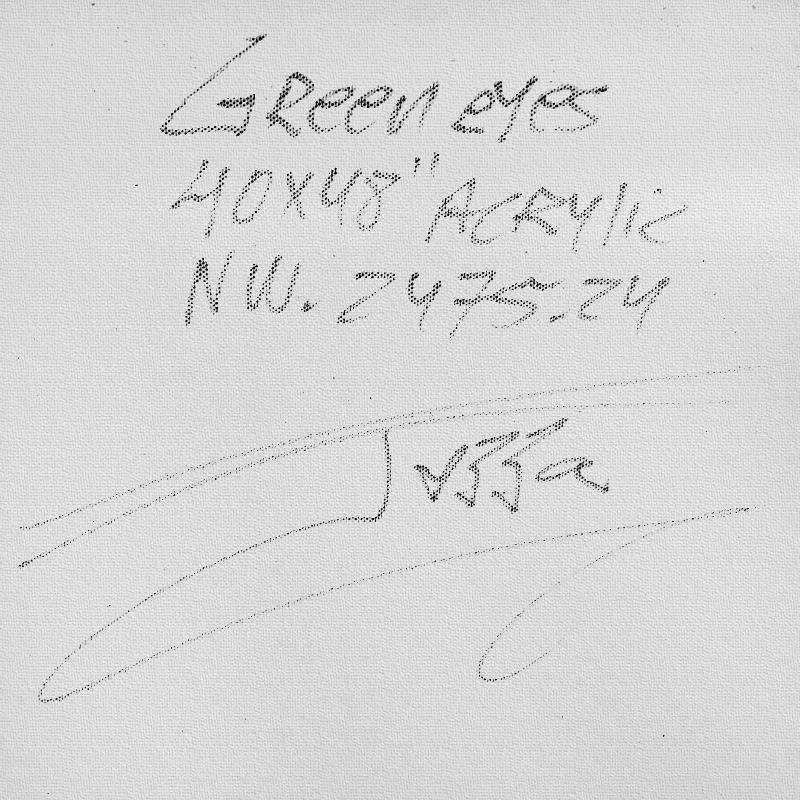 Green eyes
40x48" Acrylic
NW. 2475.24